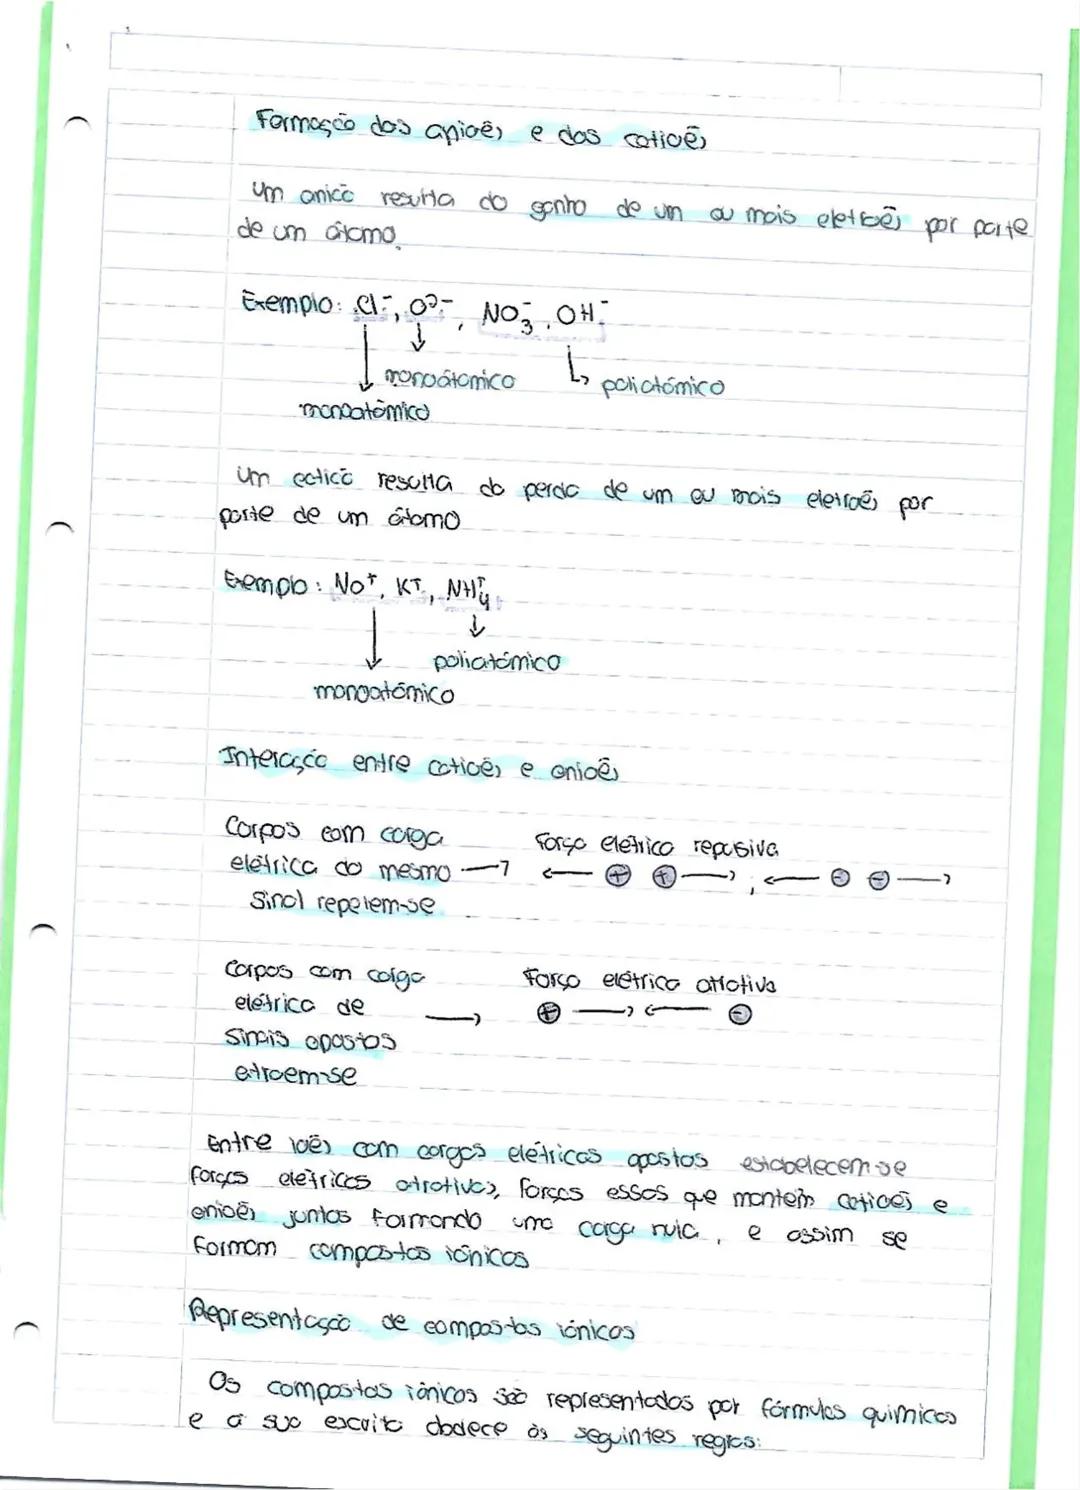 Formação dos aniões e dos catiões
Um anião resulta do ganho de um ou mais eletrões por parte
de um átomo.
Exemplo: Cl⁻, O²⁻, NO₃⁻, OH⁻
monoátomico poliatómico
monoatómico
Um catião resulta do perda de um ou mais eletrões por
parte de um átomo
Exemplo: Na⁺, K⁺, NH₄⁺
poliatómico
monoatómico
Interação entre catiões e aniões
Corpos com carga Força elétrica repusiva
elétrica do mesmo → ← ⊕ ⊕ → ; ← ⊖ ⊖ →
sinal repelem-se
Corpos com carga Força elétrica atrativa
elétrica de → ⊕ → ← ⊖
sinais opostos
atraem-se
Entre iões com cargas elétricas opostas estabelecem-se
forças elétricas atrativas, forças essas que mantêm catiões e
aniões juntos formando uma carga nula, e assim se
formam compostos iónicos
Representação de compostos iónicos
Os compostos iónicos são representados por fórmulas quimicas
e a sua escrita obdece às seguintes regras: